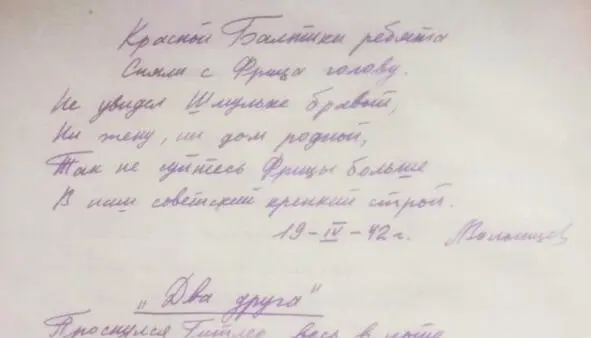 Красной Балтики ребята
Сняли с Фрица голову.
Не увидел Шмульке бравый,
Ни жену, ни дом родной,
Так не суйтесь Фрицы больше
В наш советский крепкий строй.
19-IV-42 г.
„Два друга"
Проснулся Гитлер весь в поте